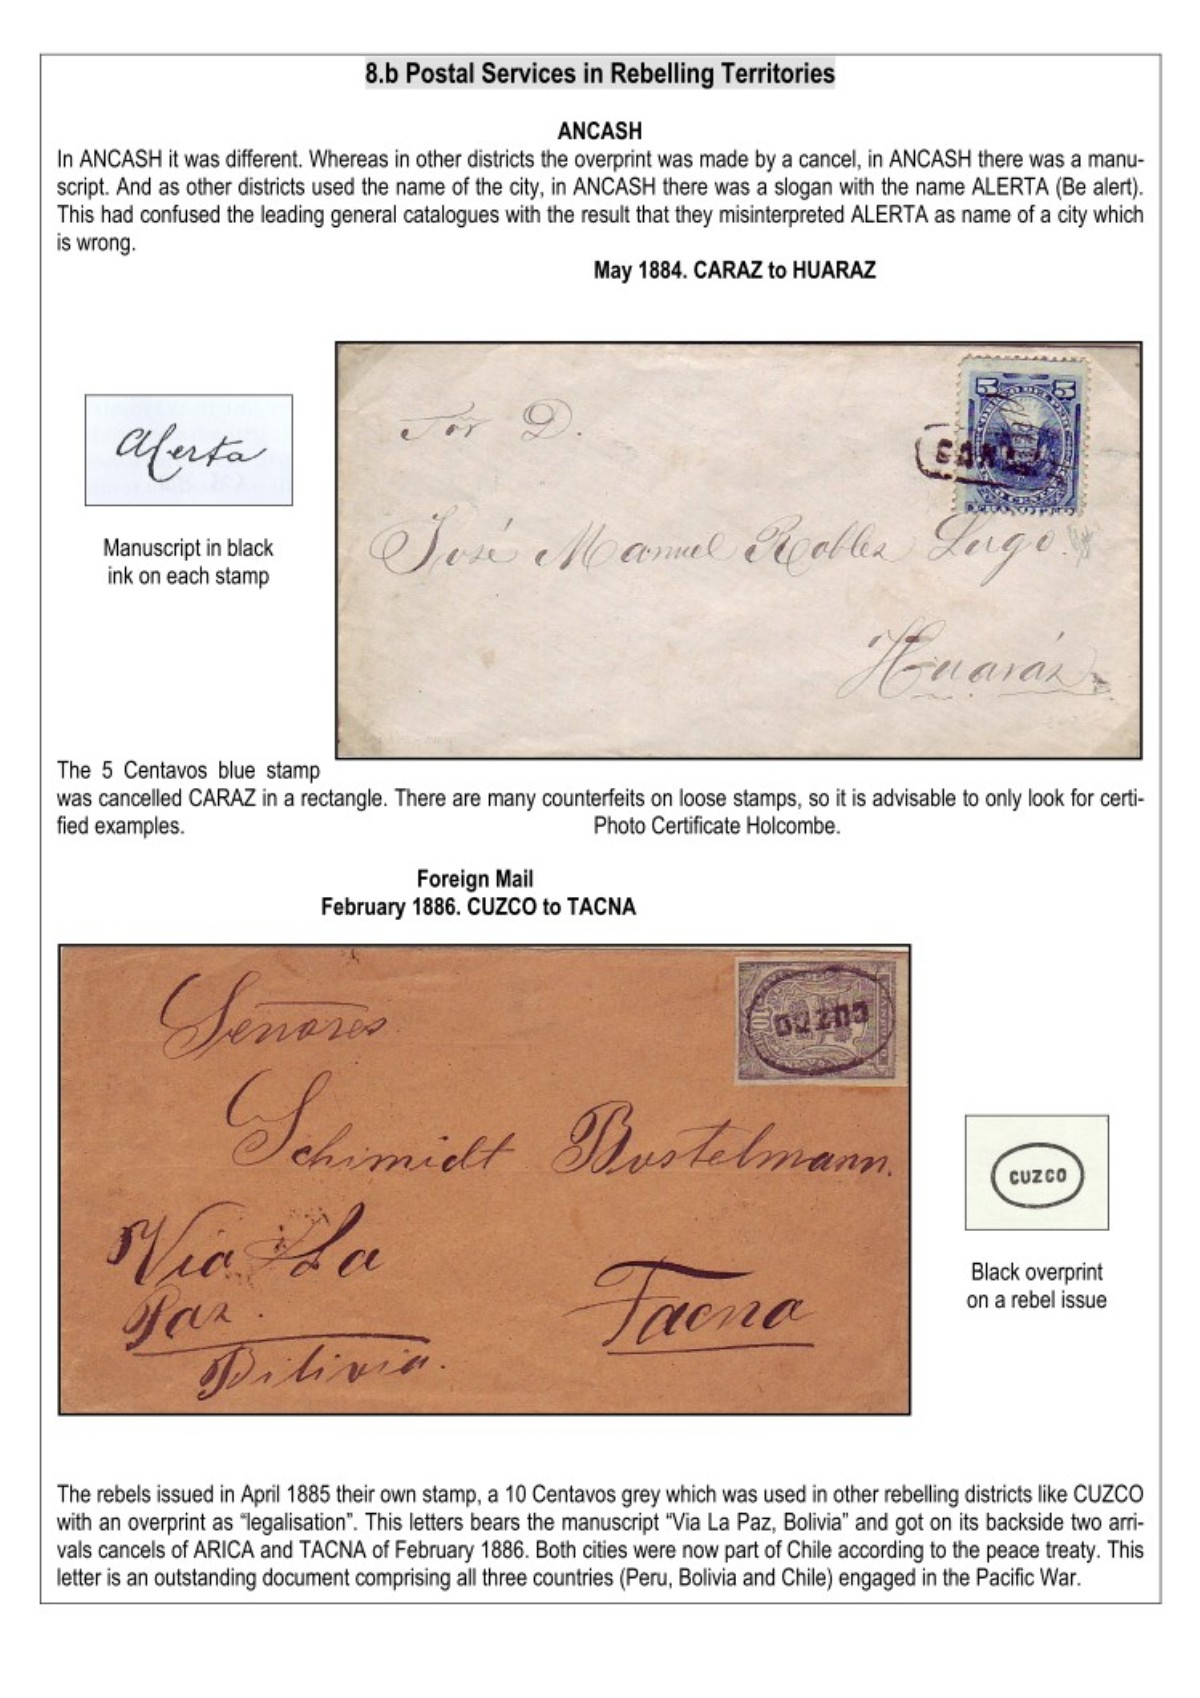 8.b Postal Services in Rebelling Territories
ANCASH
In ANCASH it was different. Whereas in other districts the overprint was made by a cancel, in ANCASH there was a manu-
script. And as other districts used the name of the city, in ANCASH there was a slogan with the name ALERTA (Be alert).
This had confused the leading general catalogues with the result that they misinterpreted ALERTA as name of a city which
is wrong.
May 1884. CARAZ to HUARAZ
Alerta
Manuscript in black
ink on each stamp
5 5
Sor D.
José Manuel Robles Lugo.
Huaráz
The 5 Centavos blue stamp
was cancelled CARAZ in a rectangle. There are many counterfeits on loose stamps, so it is advisable to only look for certi-
fied examples.
Photo Certificate Holcombe.
Foreign Mail
February 1886. CUZCO to TACNA
CUZCO
10
Señores
Schimidt Bostelmann.
Via La
Paz.
Bilivia.
Tacna
CUZCO
Black overprint
on a rebel issue
The rebels issued in April 1885 their own stamp, a 10 Centavos grey which was used in other rebelling districts like CUZCO
with an overprint as “legalisation”. This letters bears the manuscript “Via La Paz, Bolivia” and got on its backside two arri-
vals cancels of ARICA and TACNA of February 1886. Both cities were now part of Chile according to the peace treaty. This
letter is an outstanding document comprising all three countries (Peru, Bolivia and Chile) engaged in the Pacific War.